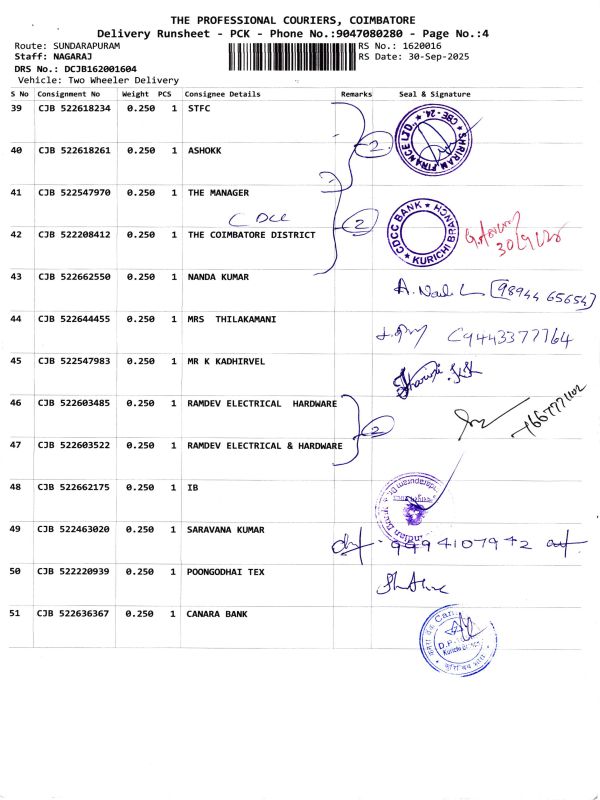 THE PROFESSIONAL COURIERS, COIMBATORE
Delivery Runsheet - PCK - Phone No.:9047080280 - Page No.:4
Route: SUNDARAPURAM RS No.: 1620016
Staff: NAGARAJ RS Date: 30-Sep-2025
DRS No.: DCJB162001604
Vehicle: Two Wheeler Delivery
S No Consignment No Weight PCS Consignee Details Remarks Seal & Signature
39 CJB 522618234 0.250 1 STFC
SHRIRAM FINANCE LTD. CBE-24
2
40 CJB 522618261 0.250 1 ASHOKK
41 CJB 522547970 0.250 1 THE MANAGER
C DCC 2
CDCC BANK KURICHI BRANCH
30/9/25
42 CJB 522208412 0.250 1 THE COIMBATORE DISTRICT
43 CJB 522662550 0.250 1 NANDA KUMAR
98944 65654
44 CJB 522644455 0.250 1 MRS THILAKAMANI
9443377764
45 CJB 522547983 0.250 1 MR K KADHIRVEL
46 CJB 522603485 0.250 1 RAMDEV ELECTRICAL HARDWARE
2
47 CJB 522603522 0.250 1 RAMDEV ELECTRICAL & HARDWARE
48 CJB 522662175 1 IB
Indian
49 CJB 522463020 0.250 1 SARAVANA KUMAR
9994107942
50 CJB 522220939 0.250 1 POONGODHAI TEX
51 CJB 522636367 0.250 1 CANARA BANK
Kurichi Branch